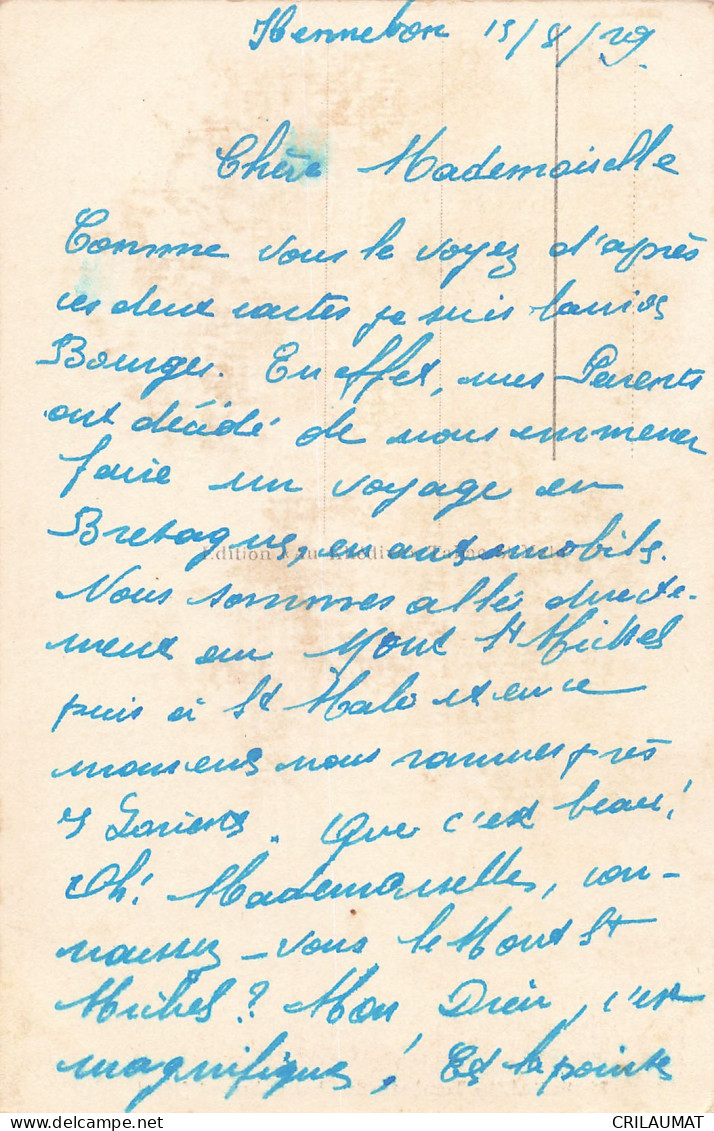 Hennebon 15/8/29.
Chère Mademoiselle
Comme vous le voyez d'après
ces deux cartes je suis loin de
Bourges. En effet, mes Parents
ont décidé de nous emmener
faire un voyage en
Bretagne, en automobile.
Nous sommes allés directe-
ment au Mont St Michel
puis à St Malo et en ce
moment nous sommes près
Lorient. Que c'est beau!
Oh! Mademoiselle, con-
naissez-vous le Mont St
Michel? Mon Dieu, c'est
magnifique! Et la pointe
Edition
CRILAUMAT